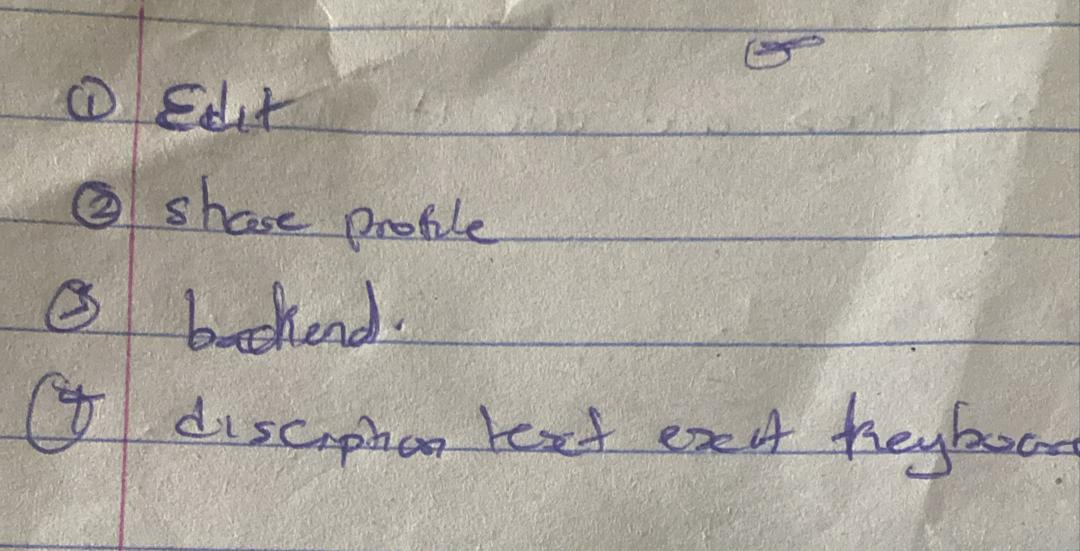 ① Edit
② share profile
③ backend.
④ discription text exit keyboar